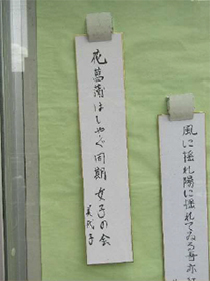 花菖蒲はしゃぐ同期女子の会
美代子
風に揺れ陽に揺れてゐる